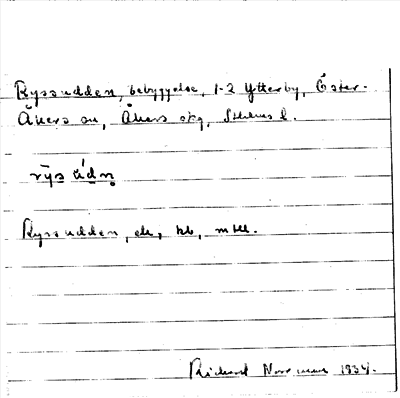 Ryssudden, bebyggelse, 1-2 Ytterby, Öster-
Åkers sn, Åkers skg, Sthlms l.
rȳs údn̥
Ryssudden, ek, kb, mtll.
Rickard Norrman 1934.